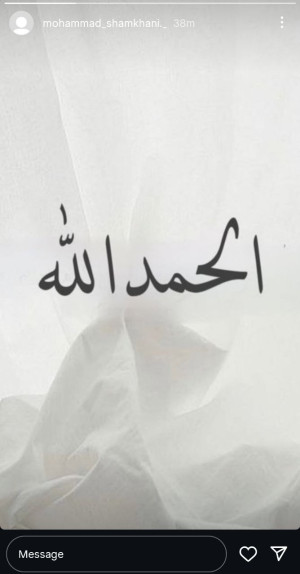 mohammad_shamkhani._ 38m
الحمدالله
Message